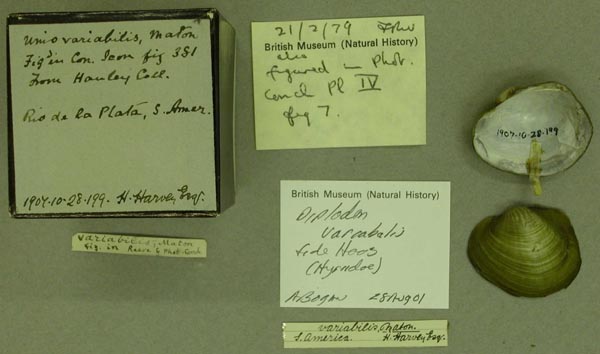 Unio variabilis, Maton
Figd in Con. Icon fig 381
From Hanley Coll.
Rio de la Plata, S. Amer.
1907-10-28-199. H. Harvey Esqr.
variabilis, Maton
fig. in Reeve & Phot. Conch
21/2/79
British Museum (Natural History)
also
figured in Phot.
Conch Pl IV
fig 7.
British Museum (Natural History)
Diplodon
variabilis
fide Haas
(Hyriidae)
A Bogan 28 Aug 01
variabilis, Maton.
S. America. H. Harvey Esqr.
1907-10-28-199